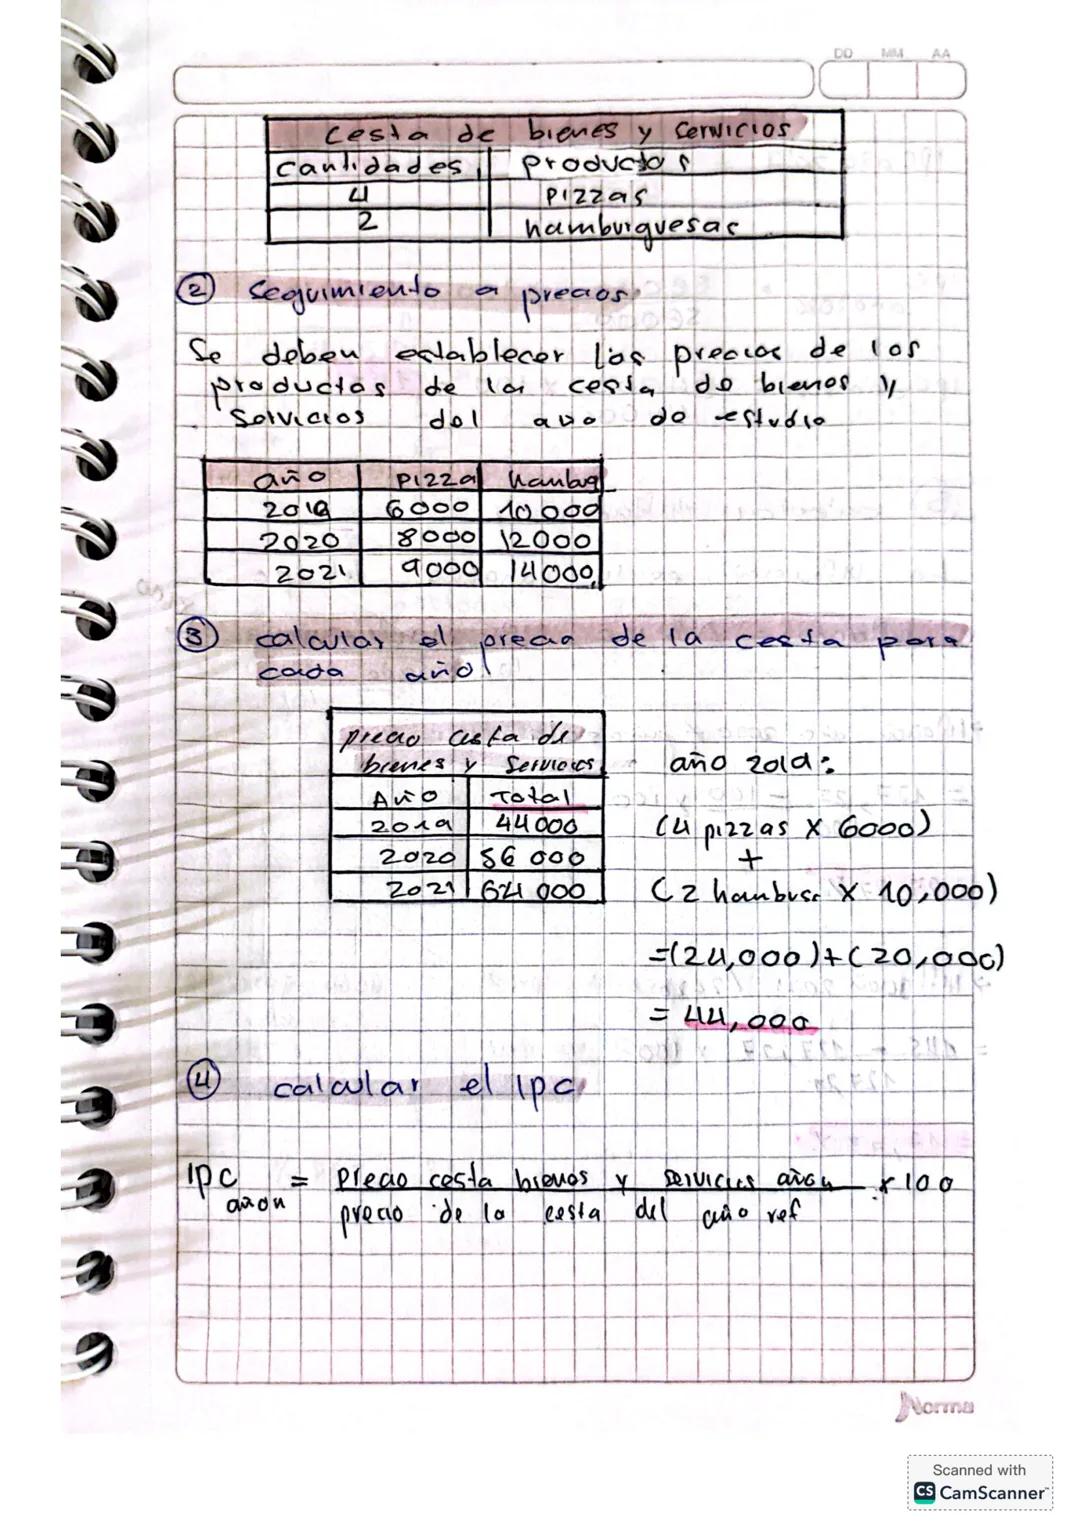 DD MM AA
Cesta de bienes y servicios
Cantidades productos
4 pizzas
2 hamburguesas
② Seguimiento a precios
Se deben establecer los precios de los
productos de la cesta de bienes y
Servicios del año de estudio
año pizza hambug
2019 6000 10000
2020 8000 12000
2021 9000 14000
③ calcular el precio de la cesta para
cada año
precio cesta de
bienes y Servicios
Año Total
2019 44 000
2020 56 000
2021 64 000
año 2019:
(4 pizzas X 6000)
+
(2 hambusr X 10,000)
=(24,000)+(20,000)
= 44,000
④ calcular el ipc
Ipc año n = precio cesta bienes y servicios año n x 100
precio de la cesta del año ref
Norma
Scanned with
CS CamScanner